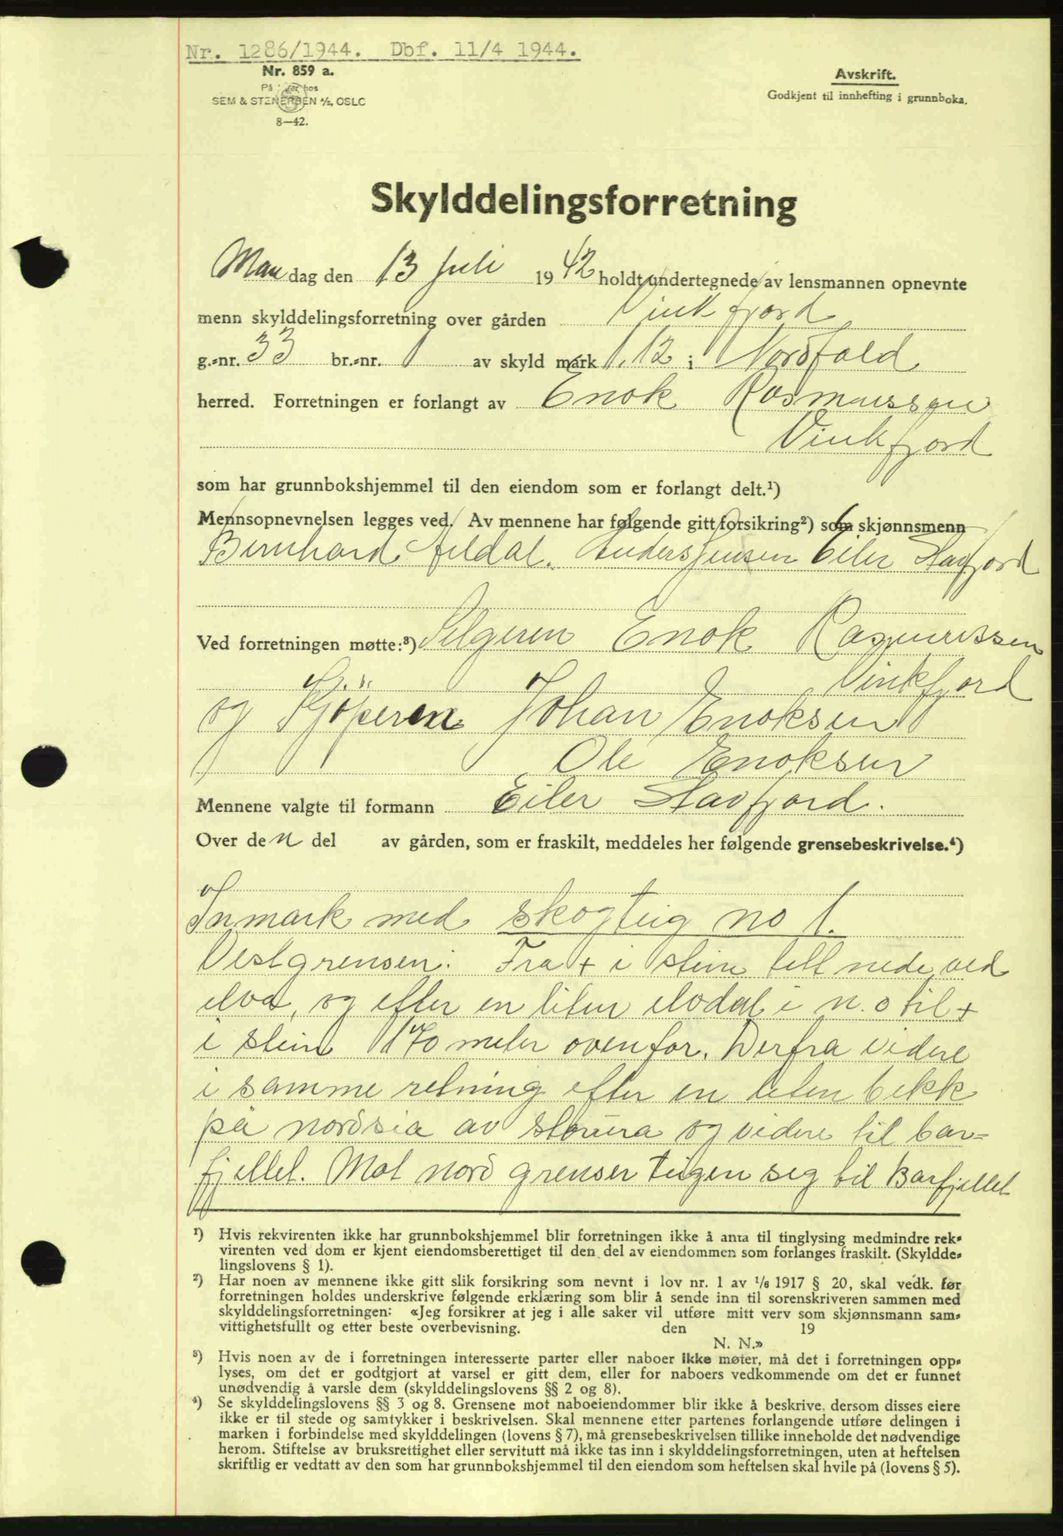 Nr. 1286/1944. Dbf. 11/4 1944.
Nr. 859 a.
På lager hos
SEM & STENERSEN A/S, OSLO
8-42.
Avskrift.
Godkjent til innhefting i grunnboka.
Skylddelingsforretning
Mandag den 13 Juli 1942 holdt undertegnede av lensmannen opnevnte
menn skylddelingsforretning over gården Vinkfjord
g.-nr. 33 br.-nr. 1 av skyld mark 1.12 i Nordfold
herred. Forretningen er forlangt av Enok Rasmussen
Vinkfjord
som har grunnbokshjemmel til den eiendom som er forlangt delt.¹)
Mennsopnevnelsen legges ved. Av mennene har følgende gitt forsikring²) som skjønnsmenn
Bernhard Anders Jensen Eiler Stavfjord
Ved forretningen møtte:³) Selgeren Enok Rasmussen
Vinkfjord
og Kjöperen Johan Enoksen
Ole Enoksen
Mennene valgte til formann Eiler Stavfjord.
Over den del av gården, som er fraskilt, meddeles her følgende grensebeskrivelse.⁴)
Inmark med skogteig no 1.
Vestgrensen: Fra + i stein tett nede ved
elva, og efter en liten elvdal i n.o til +
i stein 170 meter ovenfor. Derfra videre
i samme retning efter en liten bekk
på nordsia av storura og videre til bar=
fjellet. Mot nord grenser teigen seg til Barfjellet
¹) Hvis rekvirenten ikke har grunnbokshjemmel blir forretningen ikke å anta til tinglysing medmindre rek-
virenten ved dom er kjent eiendomsberettiget til den del av eiendommen som forlanges fraskilt. (Skyldde-
lingslovens § 1).
²) Har noen av mennene ikke gitt slik forsikring som nevnt i lov nr. 1 av 1/6 1917 § 20, skal vedk. før
forretningen holdes underskrive følgende erklæring som blir å sende inn til sorenskriveren sammen med
skylddelingsforretningen: «Jeg forsikrer at jeg i alle saker vil utføre mitt verv som skjønnsmann sam-
vittighetsfullt og etter beste overbevisning. den 19
N. N.»
³) Hvis noen av de i forretningen interesserte parter eller naboer ikke møter, må det i forretningen opp-
lyses, om det er godtgjort at varsel er gitt dem, eller for naboers vedkommende om det er funnet
unødvendig å varsle dem (skylddelingslovens §§ 2 og 8).
⁴) Se skylddelingslovens §§ 3 og 8. Grensene mot naboeiendommer blir ikke å beskrive, dersom disses eiere
ikke er til stede og samtykker i beskrivelsen. Skal mennene etter partenes forlangende utføre delingen i
marken i forbindelse med skylddelingen (lovens § 7), må grensebeskrivelsen tillike inneholde det nødvendige
herom. Stiftelse av bruksrettighet eller servitutt må ikke tas inn i skylddelingsforretningen, uten at heftelsen
skriftlig er vedtatt av den som har grunnbokshjemmel til den eiendom som heftelsen skal hvile på (lovens § 5).